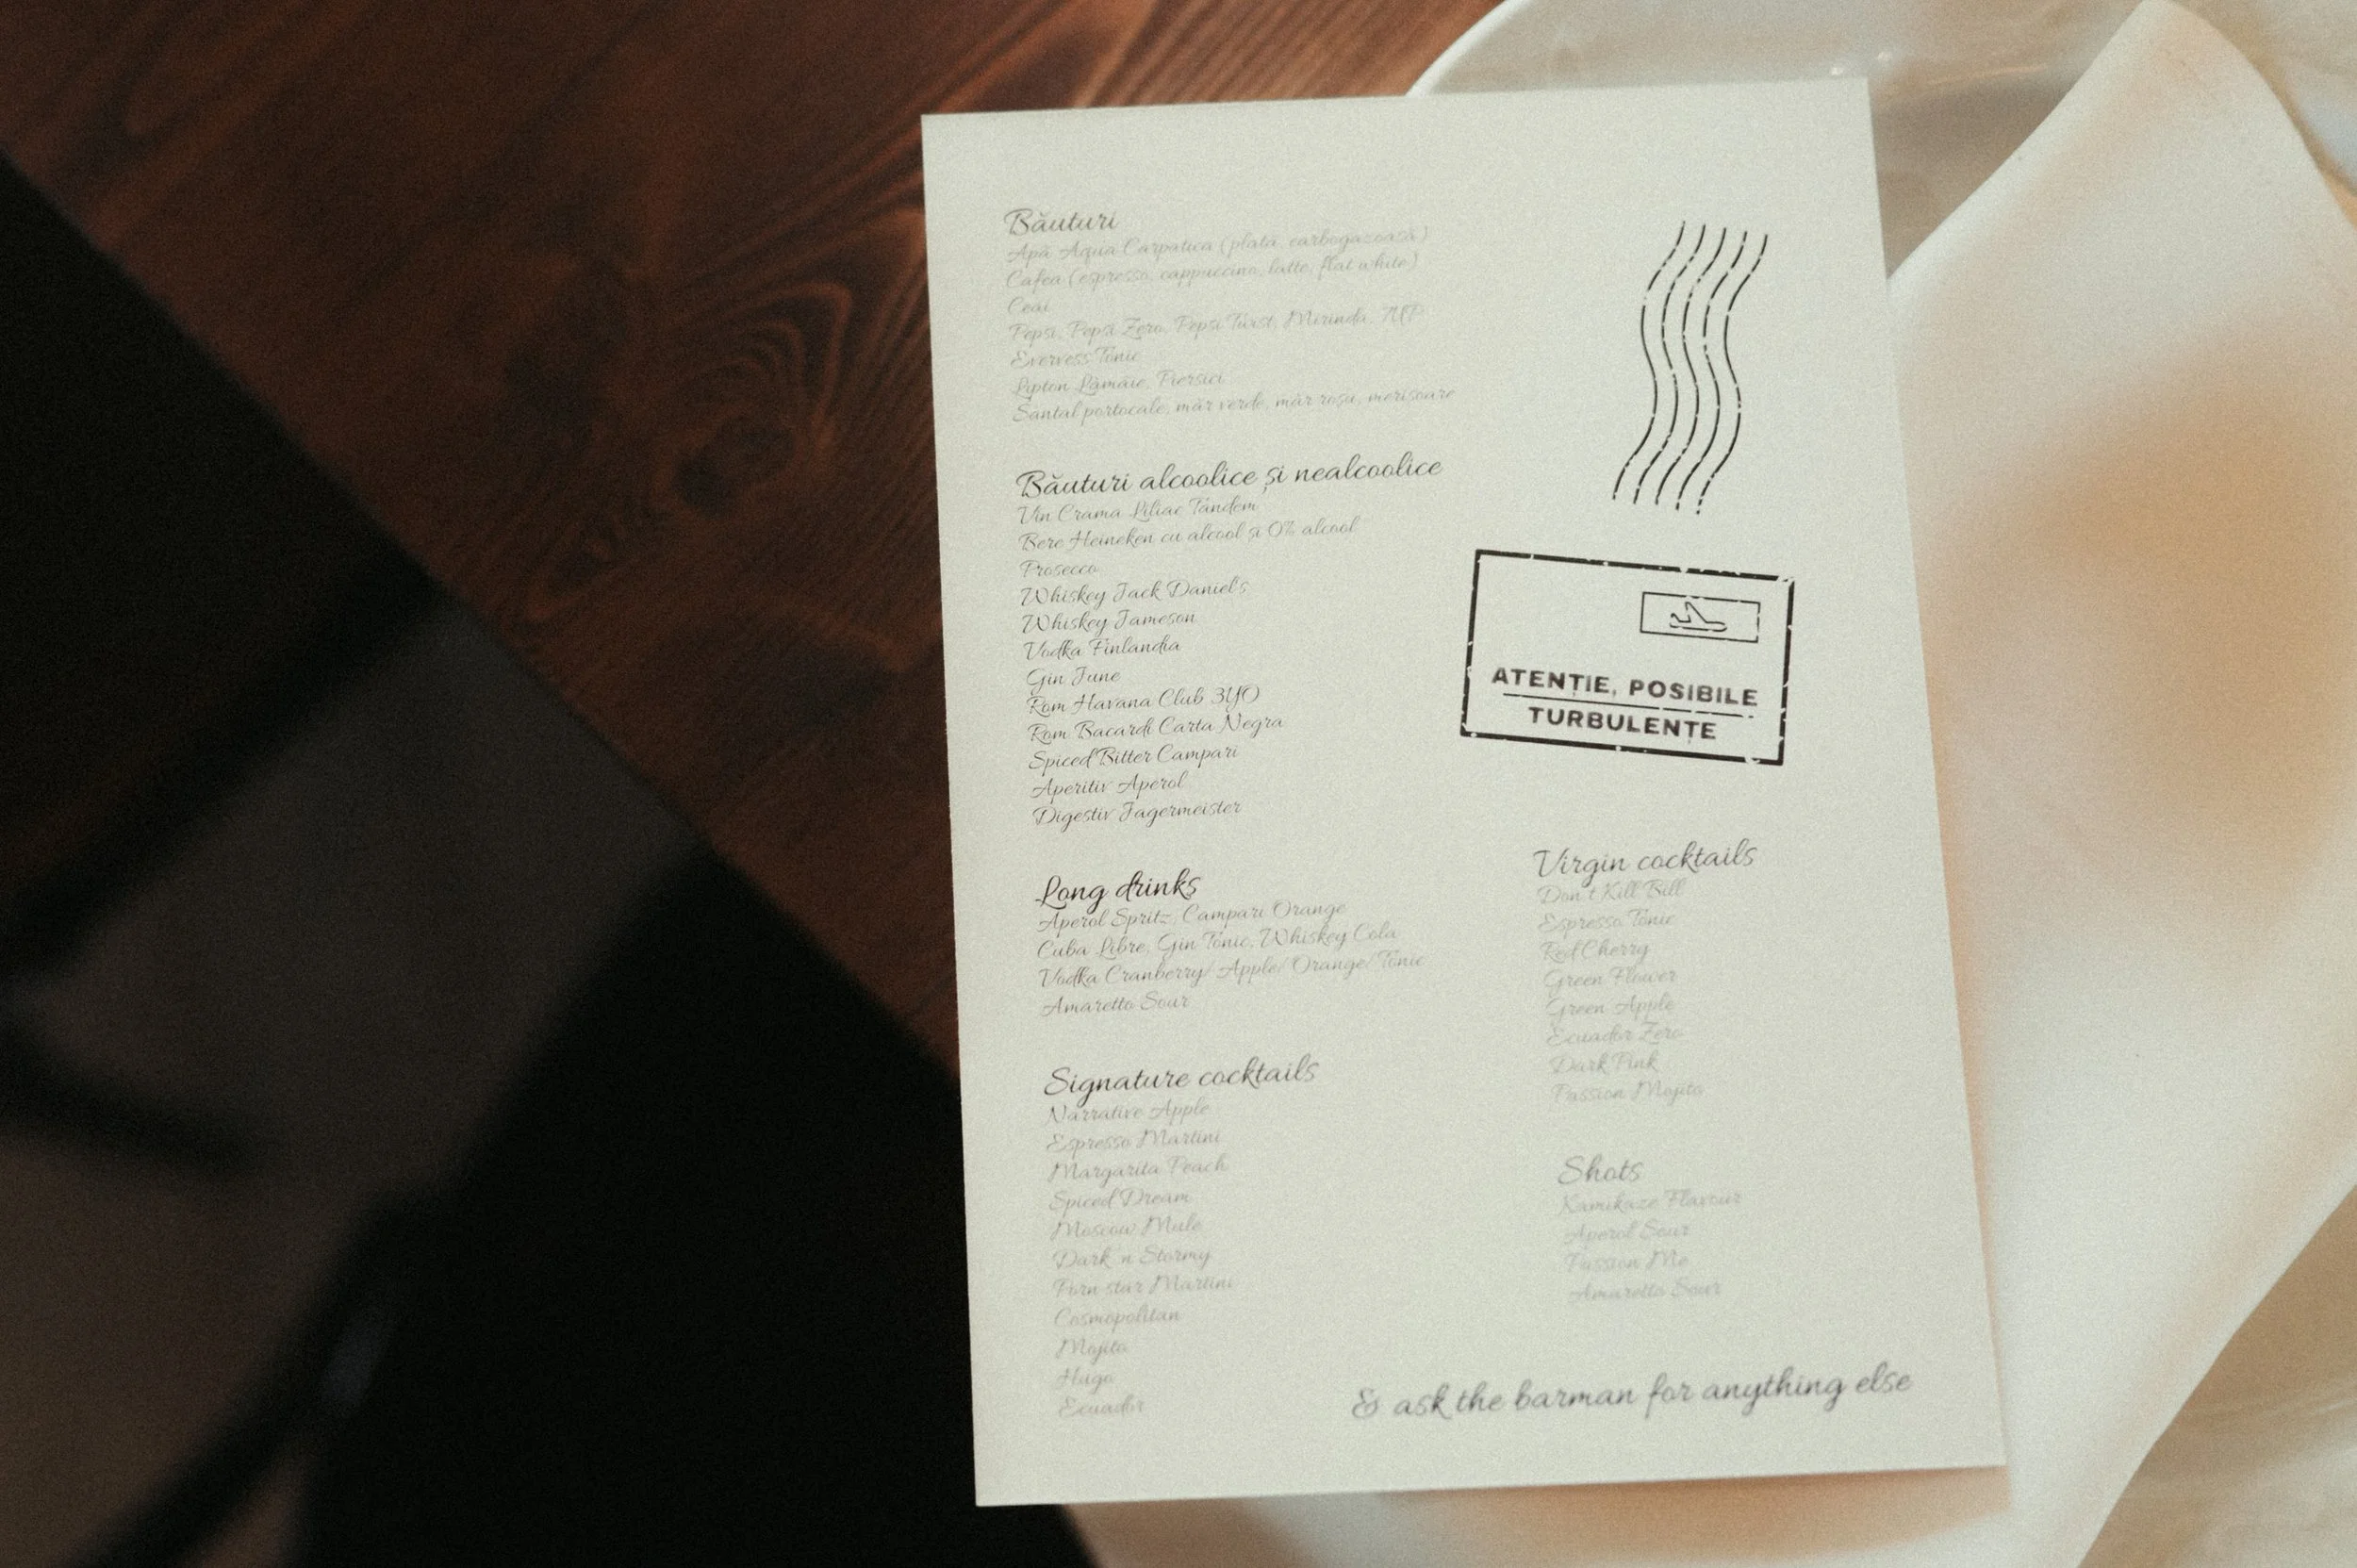 Băuturi
Apă Aqua Carpatica (plată, carbogazoasă)
Cafea (espresso, cappuccino, latte, flat white)
Ceai
Pepsi, Pepsi Zero, Pepsi Twist, Mirinda, 7UP
Evervess Tonic
Lipton Lămâie, Piersici
Santal portocale, măr verde, măr roșu, merișoare
Băuturi alcoolice și nealcoolice
Vin Crama Liliac Tandem
Bere Heineken cu alcool și 0% alcool
Prosecco
Whiskey Jack Daniel's
Whiskey Jameson
Vodka Finlandia
Gin June
Rom Havana Club 3YO
Rom Bacardi Carta Negra
Spiced Bitter Campari
Aperitiv Aperol
Digestiv Jagermeister
Long drinks
Aperol Spritz, Campari Orange
Cuba Libre, Gin Tonic, Whiskey Cola
Vodka Cranberry/ Apple/ Orange/ Tonic
Amaretto Sour
Signature cocktails
Narrative Apple
Espresso Martini
Margarita Peach
Spiced Dream
Moscow Mule
Dark 'n Stormy
Porn star Martini
Cosmopolitan
Mojito
Hugo
Ecuador
ATENȚIE, POSIBILE
TURBULENȚE
Virgin cocktails
Don't Kill Bill
Espresso Tonic
Red Cherry
Green Flower
Green Apple
Ecuador Zero
Dark Pink
Passion Mojito
Shots
Kamikaze Flavour
Aperol Sour
Passion Me
Amaretto Sour
& ask the barman for anything else